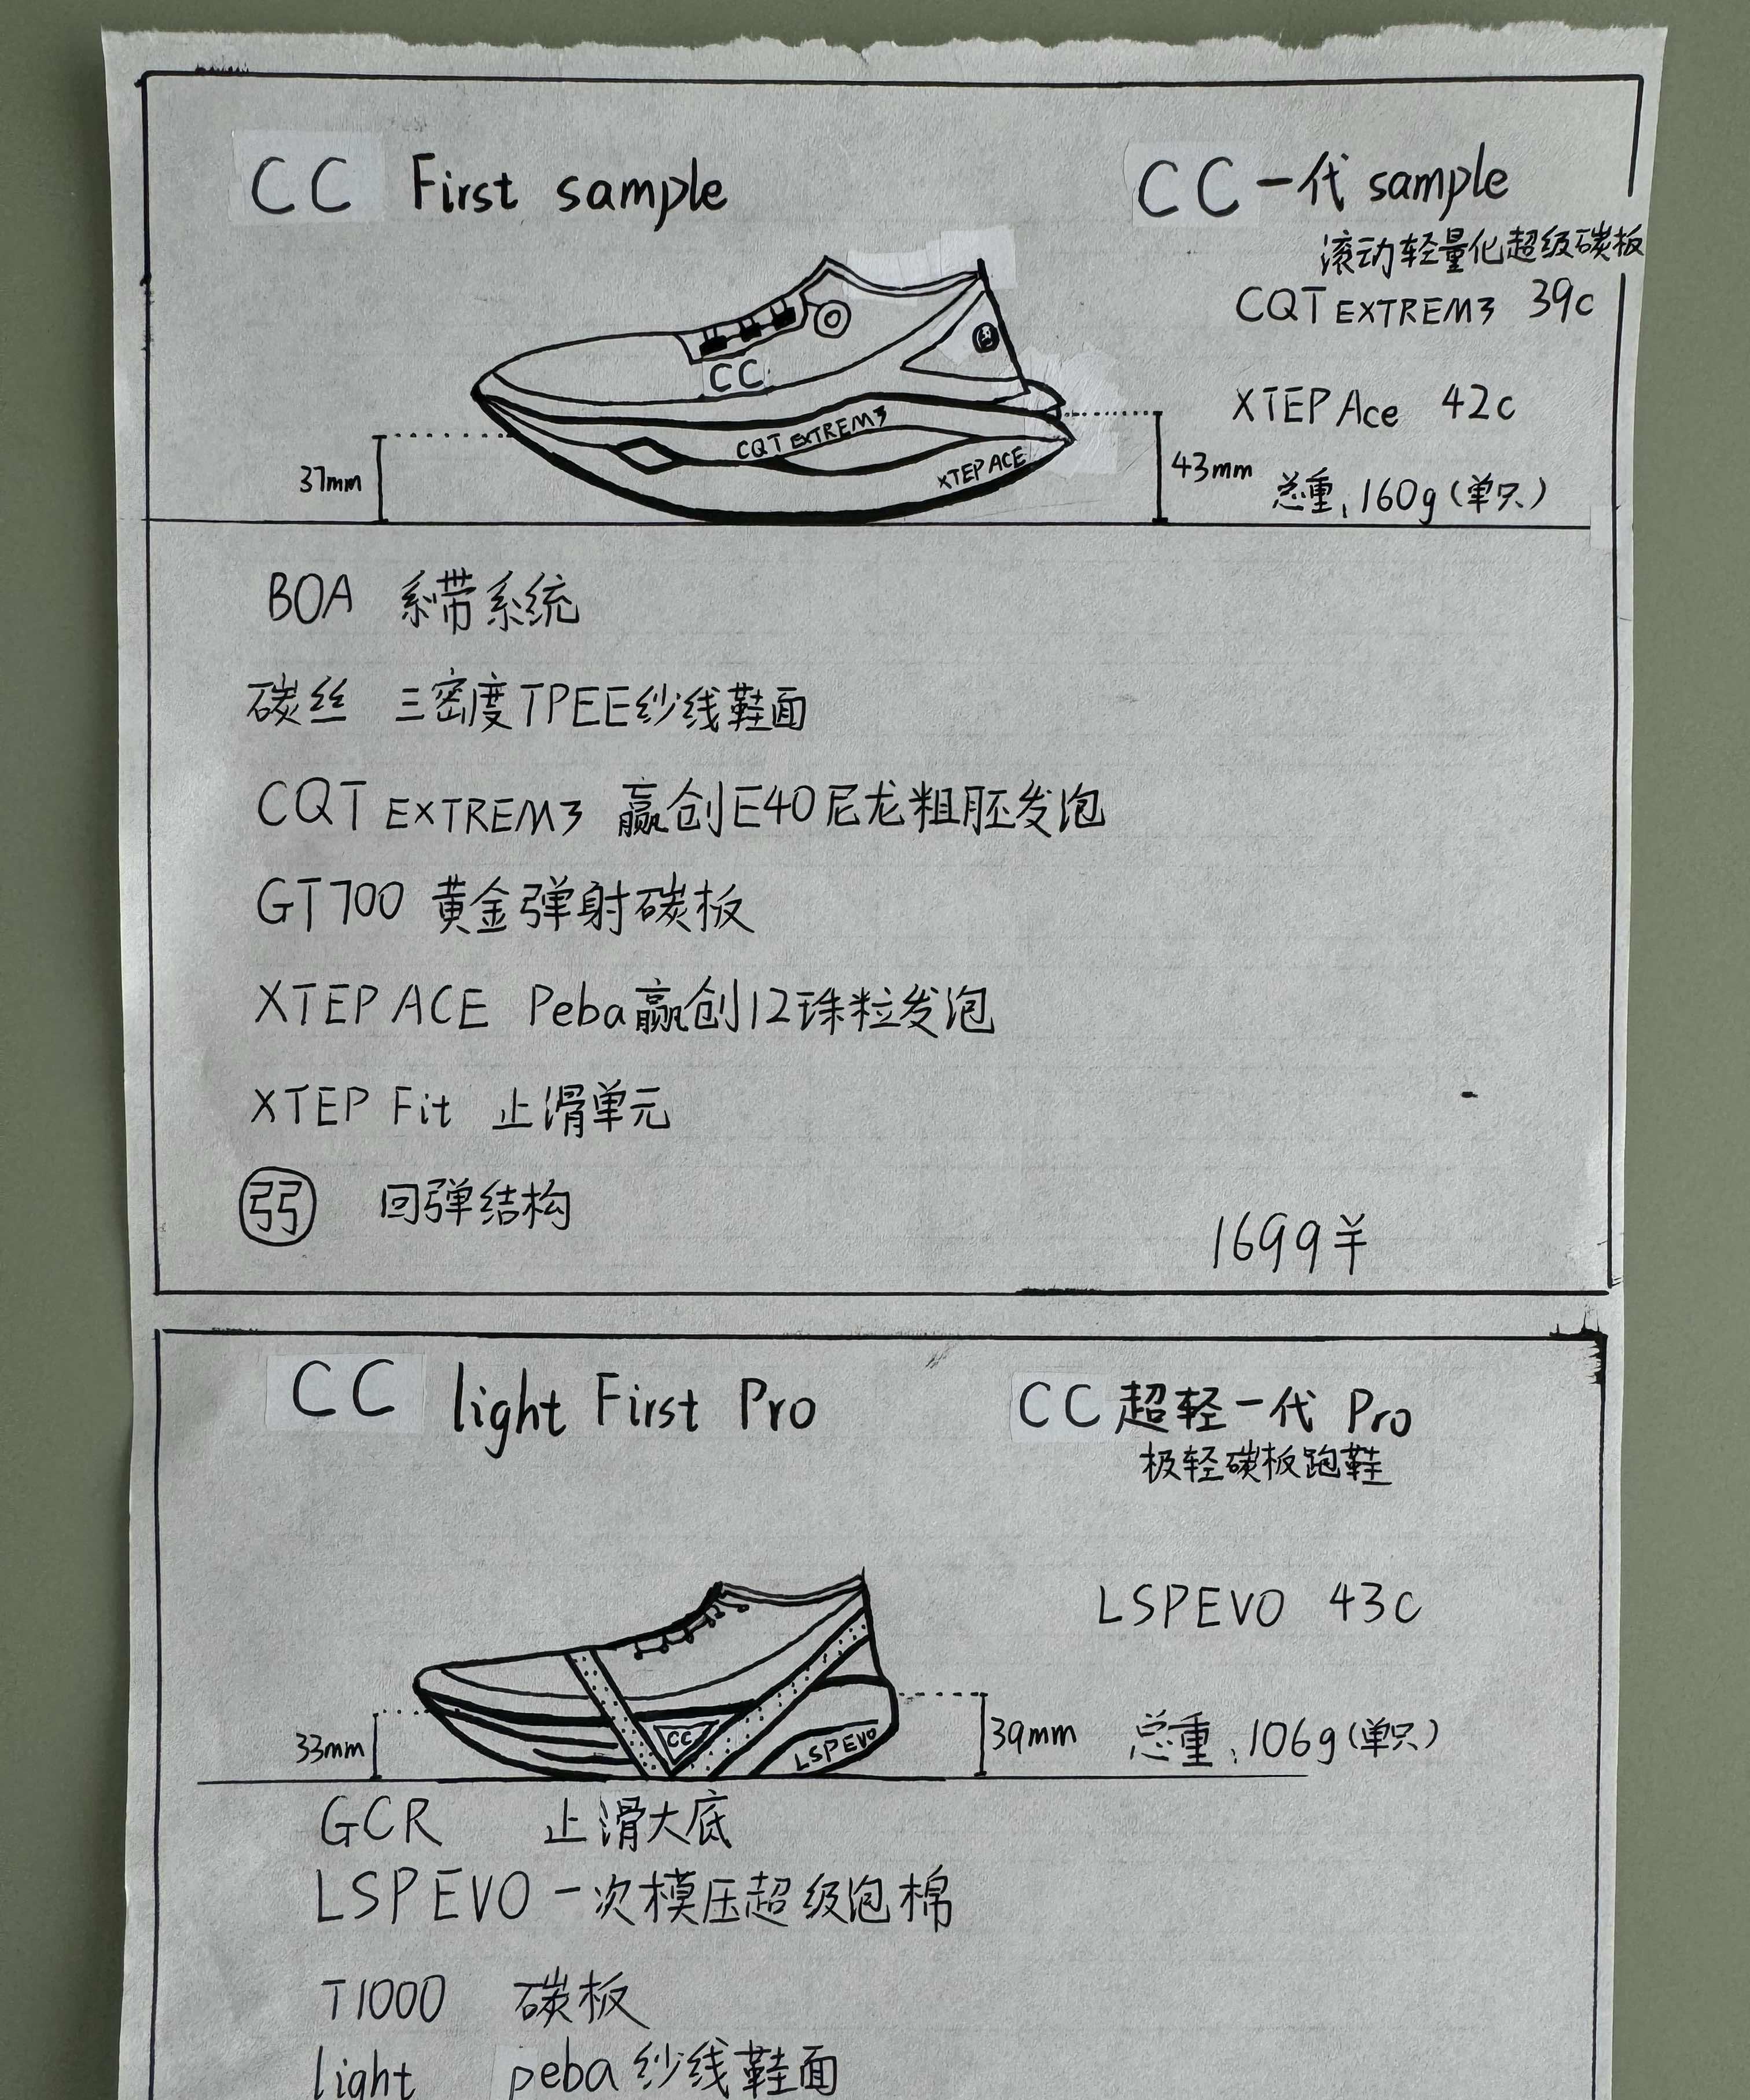 CC First sample
CC 一代 sample
滚动轻量化超级碳板
CQT EXTREM3 39c
XTEP Ace 42c
总重, 160g (单只)
CC
CQT EXTREM3
XTEP ACE
37mm
43mm
BOA 系带系统
碳丝 三密度TPEE纱线鞋面
CQT EXTREM3 赢创E40尼龙粗胚发泡
GT700 黄金弹射碳板
XTEP ACE Peba赢创12珠粒发泡
XTEP Fit 止滑单元
弱 回弹结构
1699¥
CC light First Pro
CC 超轻一代 Pro
极轻碳板跑鞋
LSPEVO 43c
总重, 106g (单只)
CC
LSPEVO
33mm
39mm
GCR 止滑大底
LSPEVO 一次模压超级泡棉
T1000 碳板
light peba 纱线鞋面